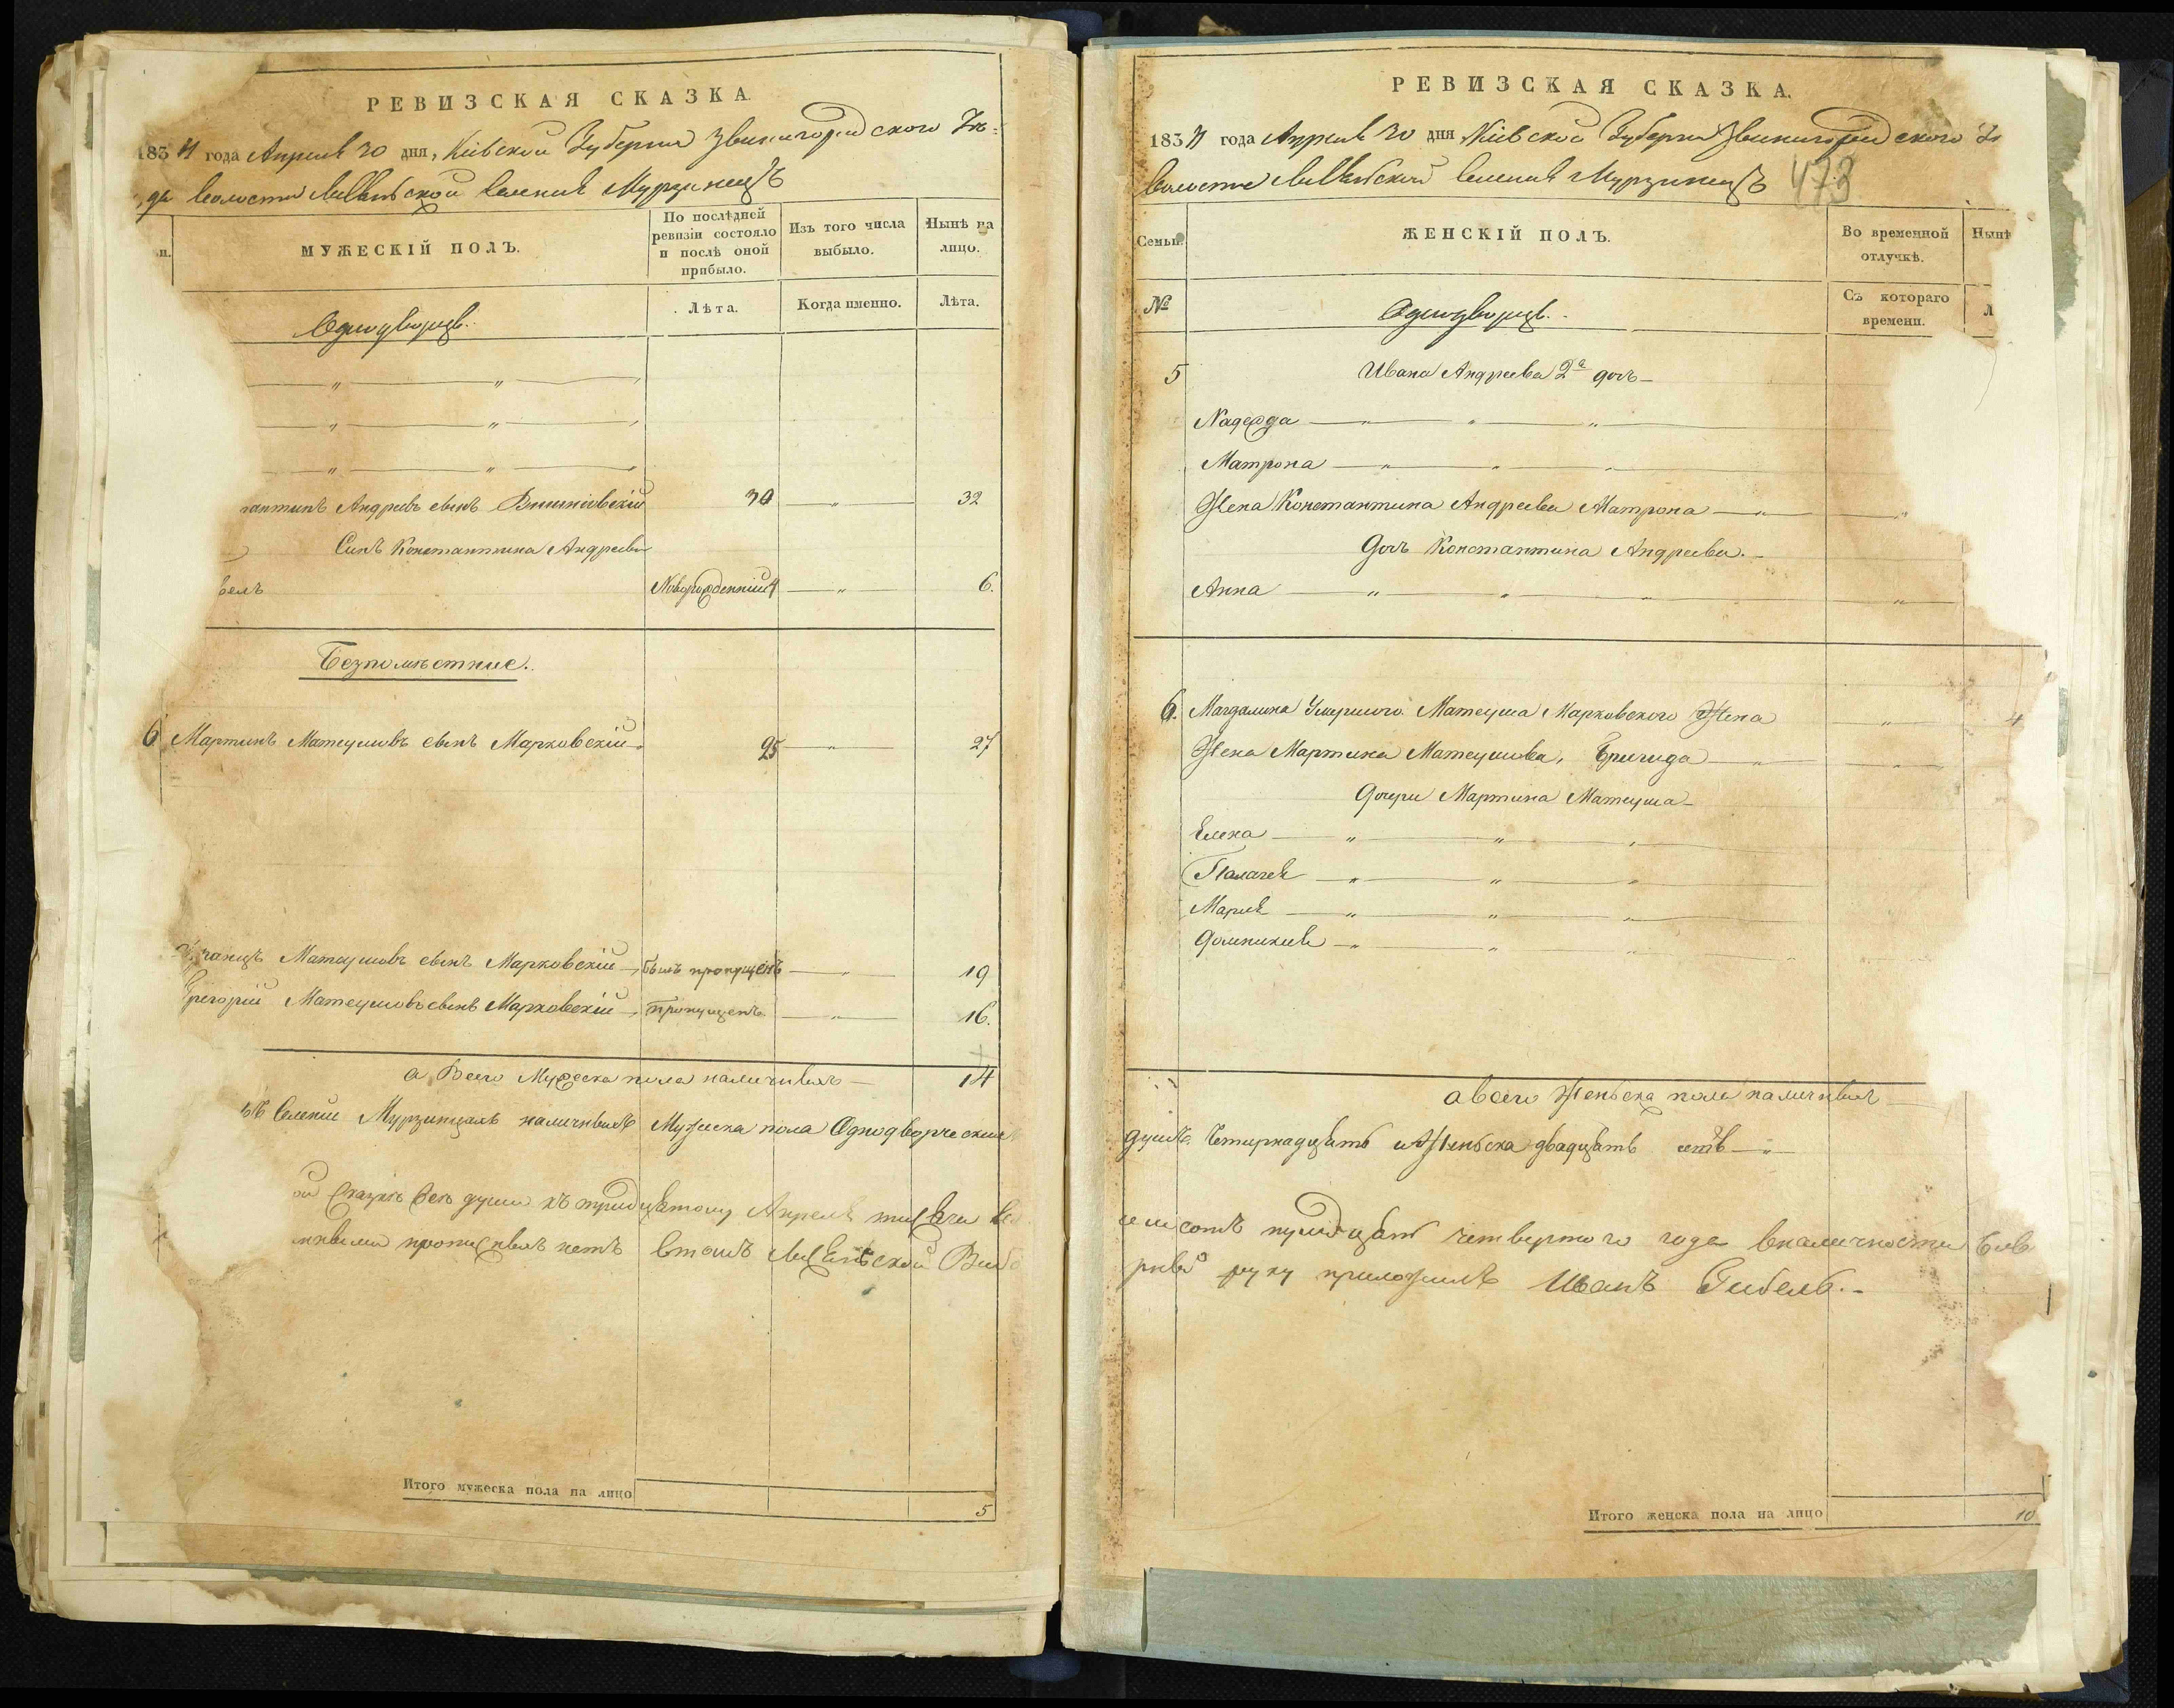 РЕВИЗСКАЯ СКАЗКА
1834 года Апреля 30 дня, Кіевской Губерніи Звенигородского
волости селенія Мурзинецъ
МУЖЕСКІЙ ПОЛЪ.
По послѣдней ревизіи состояло и послѣ оной прибыло.
Изъ того числа выбыло.
Нынѣ на лицо.
Лѣта.
Когда именно.
Лѣта.
Однодворцы.
Андреевъ сынъ 30 — „ — 32
Сынъ Константина Андреева
Новорожденный — „ — 6.
Безпоместние.
6 Мартинъ Матеушовъ сынъ Марковскій 25 — „ — 27
Матеушовъ сынъ Марковскій — былъ пропущенъ — „ — 19
Григорій Матеушовъ сынъ Марковскій — пропущенъ — „ — 16.
а Всего Мужеска пола наличныхъ — 14
Селеніи Мурзинцахъ наличныхъ Мужеска пола Однодворческихъ
Сказкѣ все души къ тридцатому Апреля
нетъ
Итого мужеска пола на лицо
5
РЕВИЗСКАЯ СКАЗКА.
1834 года Апреля 30 дня Кіевской Губерніи Звенигородского
Волости селенія Мурзинецъ
473
Семьи.
ЖЕНСКІЙ ПОЛЪ.
Во временной отлучкѣ.
Нынѣ
№
Однодворцы.
Съ котораго времени.
Л
5 Ивана Андреева 2а дочь —
Надежда — „ — „ — „
Матрона — „ — „ — „
Жена Константина Андреева Матрона — „ — „
Дочь Константина Андреева. —
Анна — „ — „ — „ — „
6. Магдалина Умершого Матеуша Марковского Жена — „ — 4
Жена Мартина Матеушова, Бригида — „ — „
Дочери Мартина Матеуша —
Елена — „ — „ — „
Палагея — „ — „ — „
Марія — „ — „ — „
Домникея — „ — „ — „
а всего Женьска пола наличныхъ —
душъ Четырнадцать и Женьска двадцать — „ —
сотъ тридцать четвертого года
руку приложилъ Иванъ
Итого женска пола на лицо
10